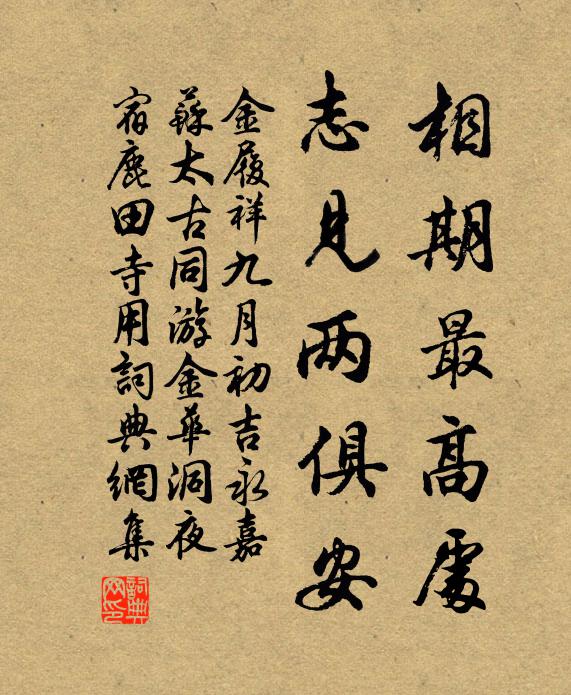 相期最高處
志見兩俱安
金履祥九月初吉永嘉
蘇太古同游金華洞夜
宿鹿田寺用詞典網集
詞典
网印